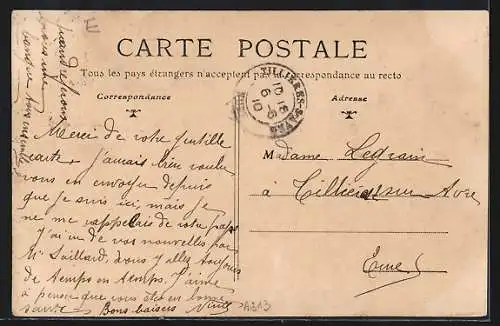 CARTE POSTALE
Tous les pays étrangers n'acceptent pas la correspondance au recto
Correspondance
Adresse
TILLIÈRES-S-AVRE
10 15
6 -6
10
Merci de votre gentille
carte. J'aurais bien voulu
vous en envoyer depuis
que je suis ici, mais je
ne me rappelais de votre pays
J'ai eu de vos nouvelles par
Mr Saillard. Vous allez toujours
de temps en temps. J'aime
à penser que vous êtes en bonne
santé Bons baisers
A313
Madame Legrain
à Tillières sur Avre
Eure
quand